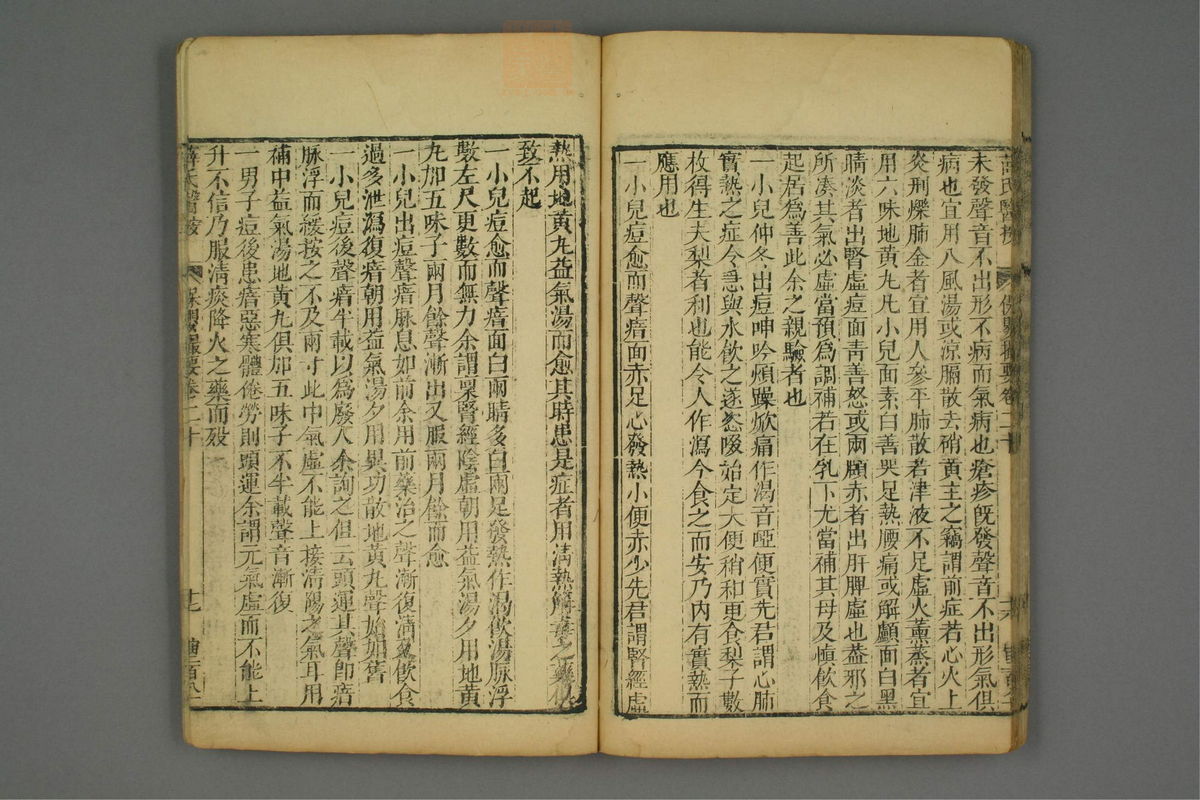 薛氏醫按 保嬰撮要卷二十 十六
未發聲音不出形不病而氣病也瘡疹旣發聲音不出形氣俱
病也宜用八風湯或凉膈散去硝黃主之竊謂前症若心火上
炎刑爍肺金者宜用人參平肺散若津液不足虛火薰蒸者宜
用六味地黃丸凡小兒面素白善哭足熱腰痛或解顱面白黑
睛淡者出腎虛痘面靑善怒或兩頤赤者出肝脾虛也蓋邪之
所湊其氣必虛當預爲調補若在乳下尤當補其母及愼飮食
起居爲善此余之親驗者也
一小兒仲冬出痘呻吟煩躁焮痛作渴音啞便實先君謂心肺
實熱之症令急與水飮之遂恣啜始定大便稍和更食梨子數
枚得生夫梨者利也能令人作瀉今食之而安乃內有實熱而
應用也
一小兒痘愈而聲瘖面赤足心發熱小便赤少先君謂腎經虛
熱用地黃丸益氣湯而愈其時患是症者用淸熱解毒之藥俱
致不起
一小兒痘愈而聲瘖面白兩睛多白兩足發熱作渴飮湯脉浮
數左尺更數而無力余謂稟腎經陰虛朝用益氣湯夕用地黃
丸加五味子兩月餘聲漸出又服兩月餘而愈
一小兒出痘聲瘖脉息如前余用前藥治之聲漸復淸氣飮食
過多泄瀉復瘖朝用益氣湯夕用異功散地黃丸聲始如舊
一小兒痘後聲瘖半載以爲廢人余詢之但云頭運其聲卽瘖
脉浮而緩按之不及兩寸此中氣虛不能上接淸陽之氣耳用
補中益氣湯地黃丸俱加五味子不半載聲音漸復
一男子痘後患瘖惡寒體倦勞則頭運余謂元氣虛而不能上
升不信乃服淸痰降火之藥而歿
薛氏醫按 保嬰撮要卷二十 十七